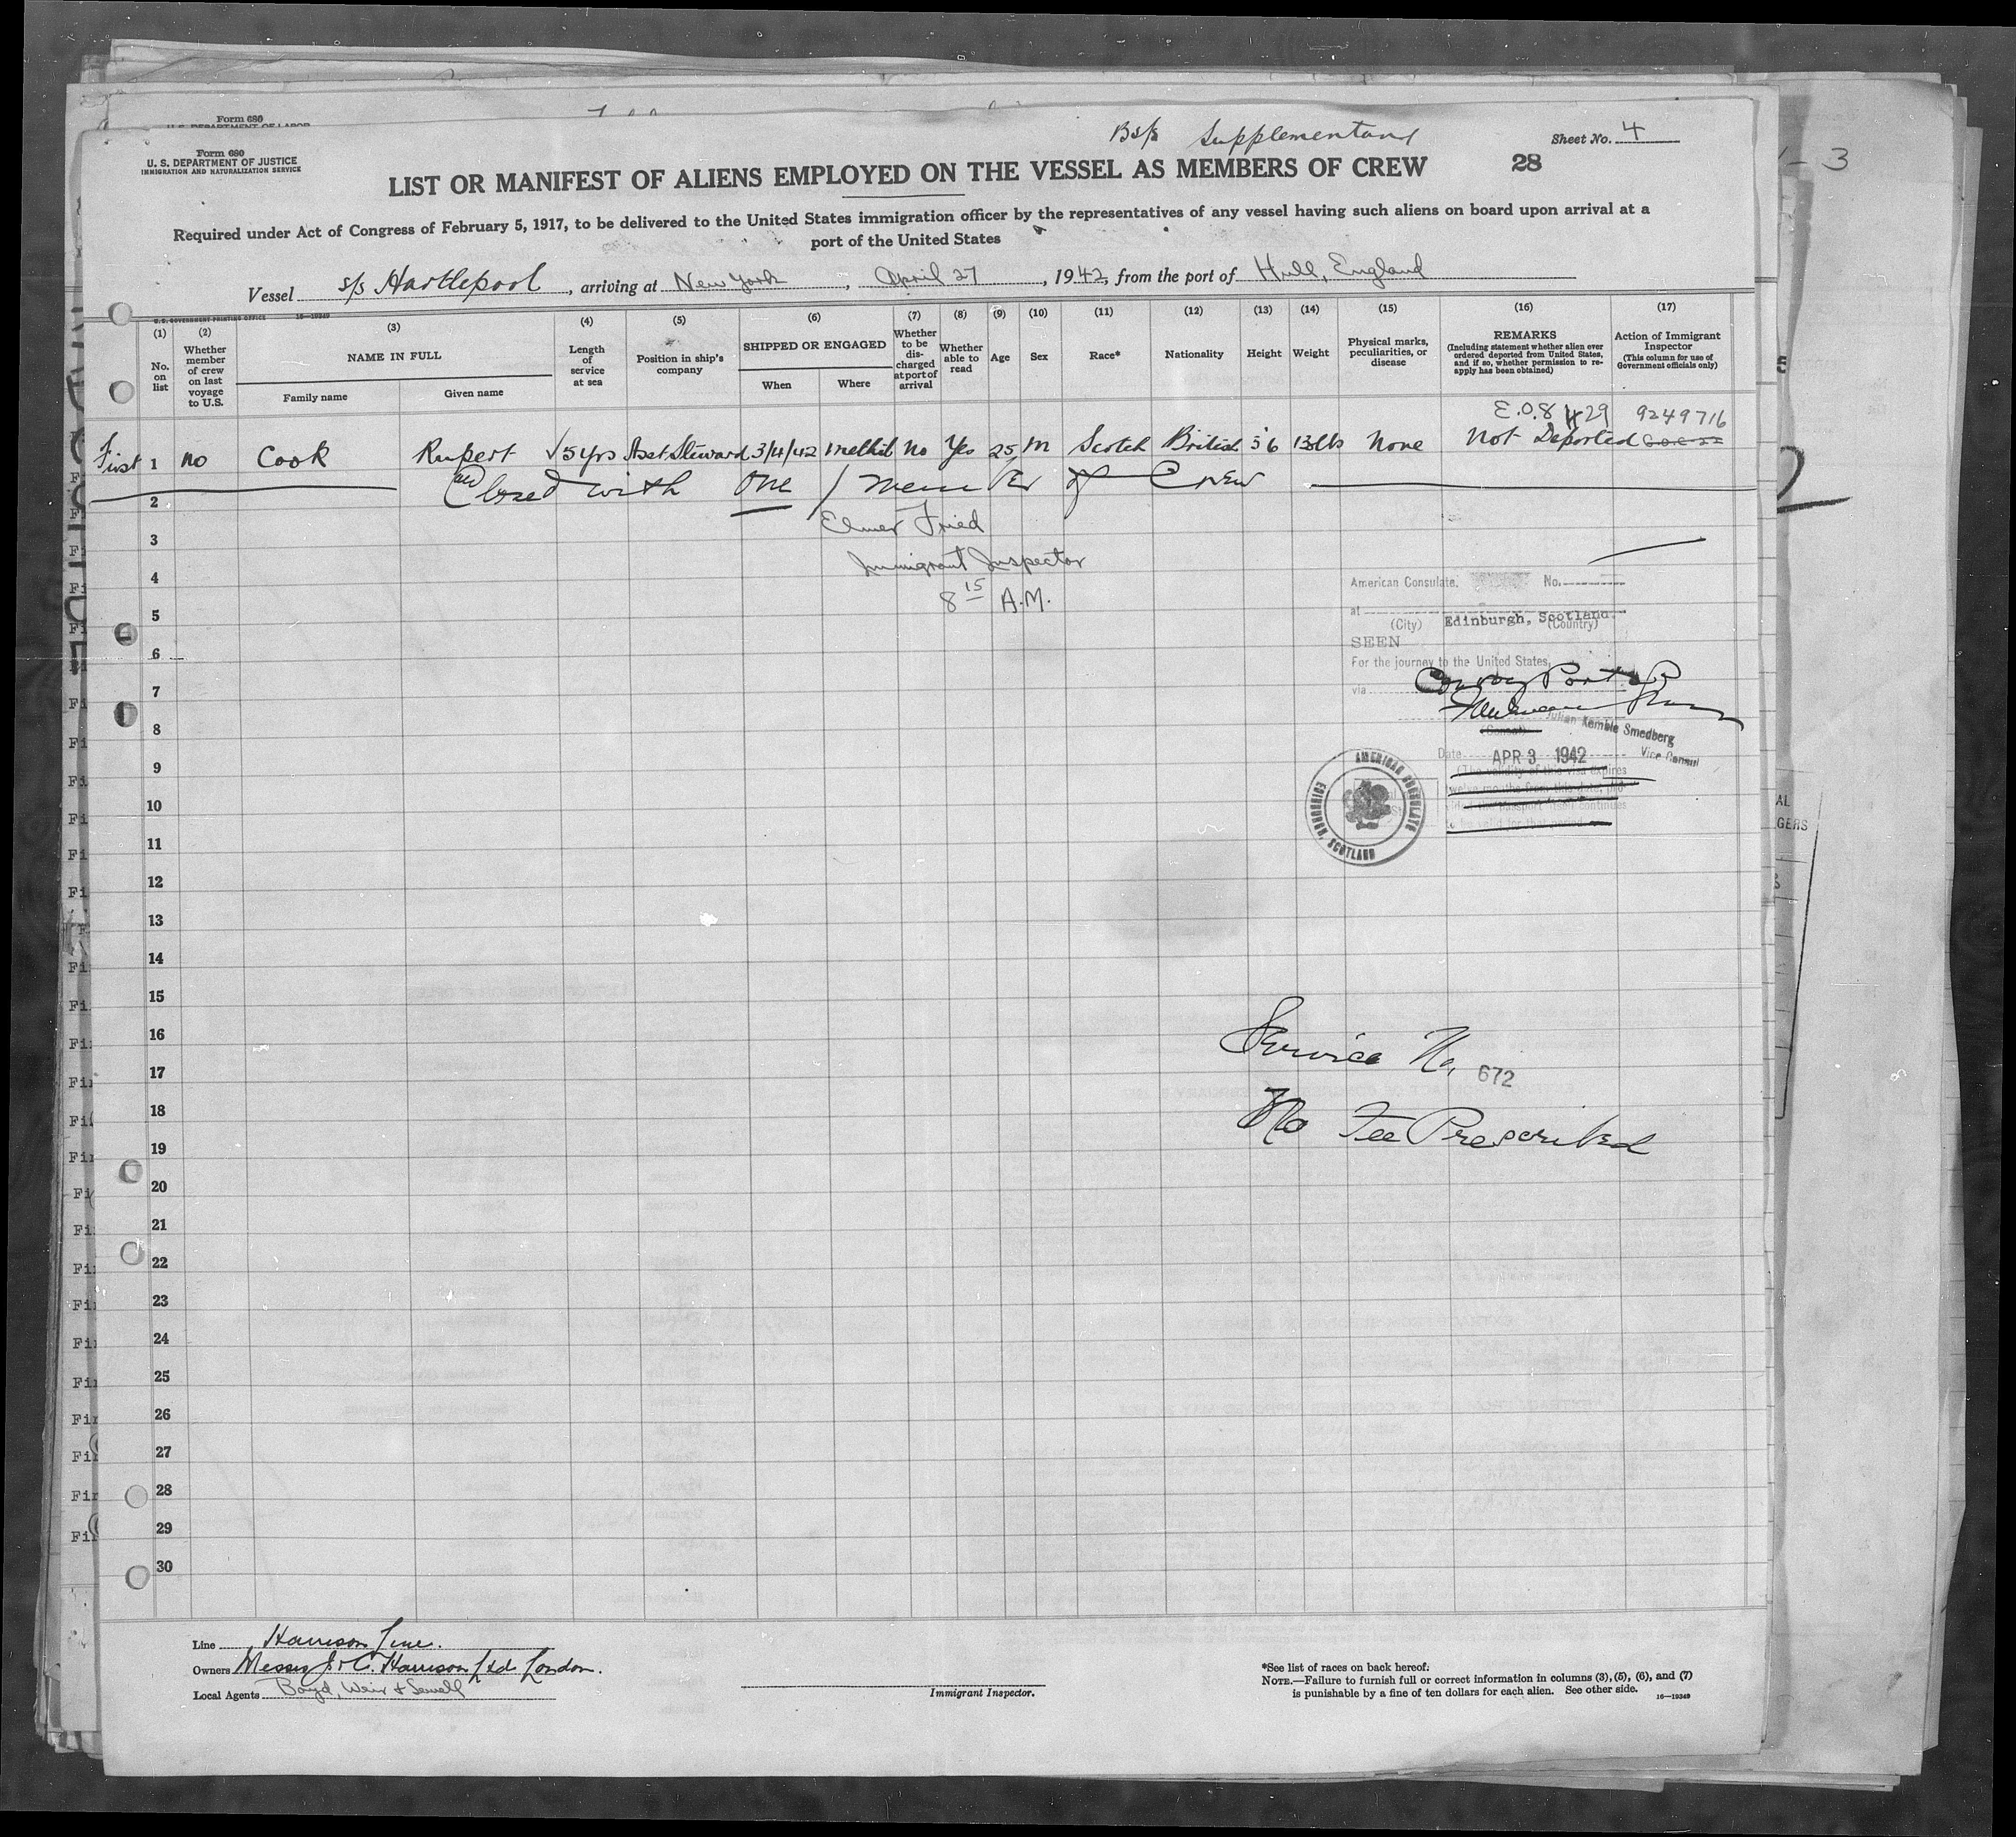 Form 680
U. S. DEPARTMENT OF LABOR
Form 680
U. S. DEPARTMENT OF JUSTICE
IMMIGRATION AND NATURALIZATION SERVICE
Bs/s Supplementary
Sheet No. 4
LIST OR MANIFEST OF ALIENS EMPLOYED ON THE VESSEL AS MEMBERS OF CREW
28
Required under Act of Congress of February 5, 1917, to be delivered to the United States immigration officer by the representatives of any vessel having such aliens on board upon arrival at a
port of the United States
Vessel s/s Hartlepool, arriving at New York, April 27, 1942, from the port of Hull, England
U.S. GOVERNMENT PRINTING OFFICE 16—19349
(1) No. on list
(2) Whether member of crew on last voyage to U.S.
(3) NAME IN FULL
Family name
Given name
(4) Length of service at sea
(5) Position in ship's company
(6) SHIPPED OR ENGAGED
When
Where
(7) Whether to be discharged at port of arrival
(8) Whether able to read
(9) Age
(10) Sex
(11) Race*
(12) Nationality
(13) Height
(14) Weight
(15) Physical marks, peculiarities, or disease
(16) REMARKS
(Including statement whether alien ever ordered deported from United States, and if so, whether permission to reapply has been obtained)
(17) Action of Immigrant Inspector
(This column for use of Government officials only)
E.O.8429 9249716
First 1 no Cook Rupert √5yrs Asst Steward 3/4/42 Methil No Yes 25 M Scotch British 5'6 None Not Deported
Closed with one / member of Crew
2
Elmer Fried
3
Immigrant Inspector
4
8 15 A.M.
5
6
7
8
9
10
11
12
13
14
15
16
17
18
19
20
21
22
23
24
25
26
27
28
29
30
American Consulate. No.
at Edinburgh, Scotland.
(City) (Country)
SEEN
For the journey to the United States,
via Convoy Port of
(Consul)
Julian Kemble Smedberg
Vice Consul
Date APR 3 1942
(The validity of this visa expires
twelve months from this date, pro-
to be valid for that period
AMERICAN CONSULATE
EDINBURGH, SCOTLAND
Service No. 672
No Fee Prescribed
Line Harrison Line.
Owners Messrs J. & C. Harrison Ltd London.
Local Agents Boyd, Weir & Sewell
Immigrant Inspector.
*See list of races on back hereof.
NOTE.—Failure to furnish full or correct information in columns (3), (5), (6), and (7)
is punishable by a fine of ten dollars for each alien. See other side.
16—19349